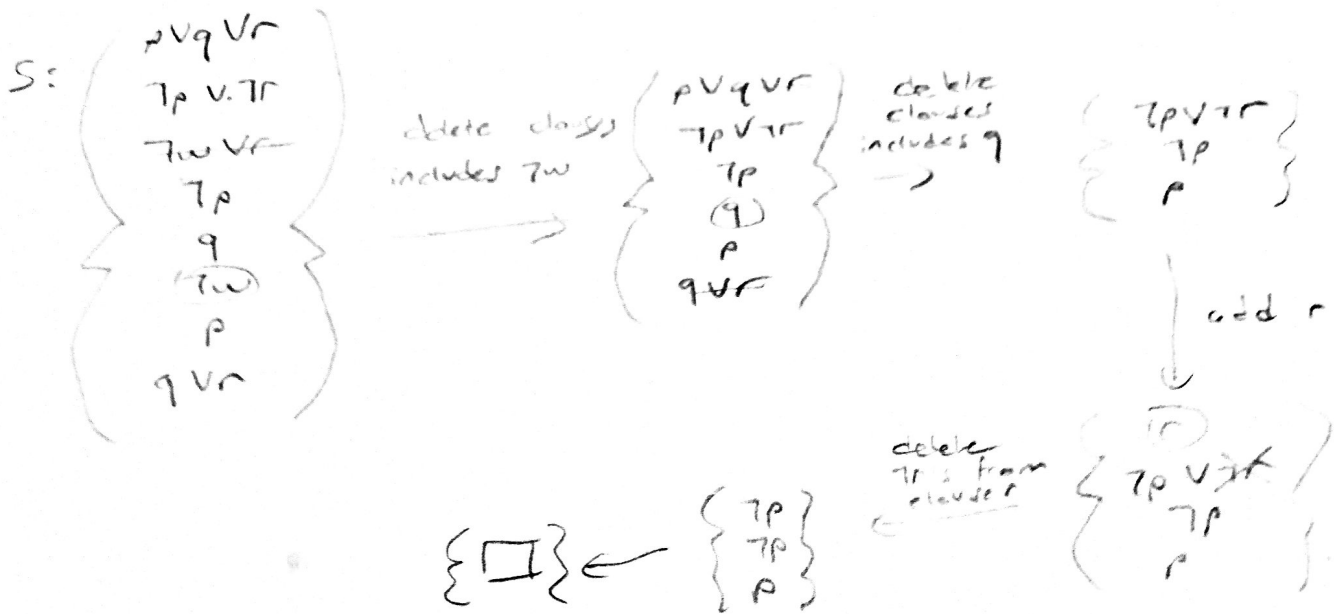 S:
p∨q∨r
¬p ∨ ¬r
¬w ∨ r
¬p
q
¬w
p
q ∨ r
delete clauses
includes ¬w
p∨q∨r
¬p∨¬r
¬p
q
p
q∨r
delete
clauses
includes q
¬p∨¬r
¬p
p
add r
r
¬p ∨ ¬r
¬p
p
delete
¬r's from
¬p
¬p
p
{□}